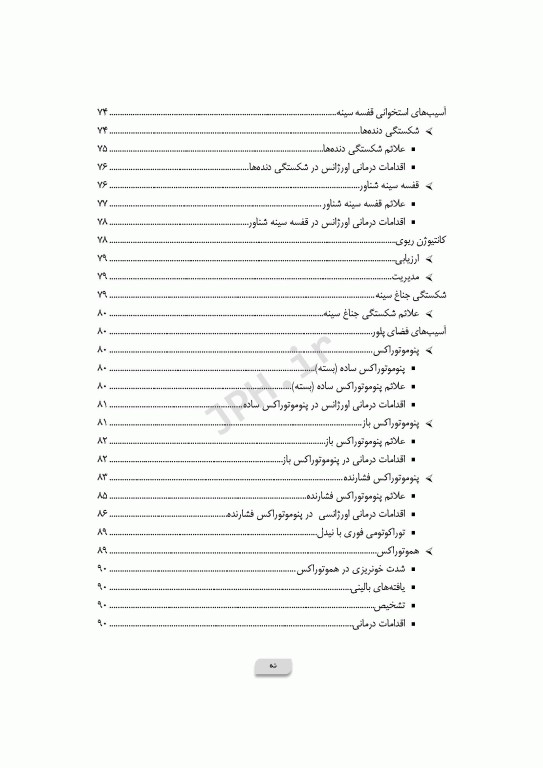 آسیب‌های استخوانی قفسه سینه ........ ۷۴
➢ شکستگی دنده‌ها ........ ۷۴
▪ علائم شکستگی دنده‌ها ........ ۷۵
▪ اقدامات درمانی اورژانس در شکستگی دنده‌ها ........ ۷۶
➢ قفسه سینه شناور ........ ۷۶
▪ علائم قفسه سینه شناور ........ ۷۷
▪ اقدامات درمانی اورژانس در قفسه سینه شناور ........ ۷۸
کانتیوژن ریوی ........ ۷۸
➢ ارزیابی ........ ۷۹
➢ مدیریت ........ ۷۹
شکستگی جناغ سینه ........ ۷۹
➢ علائم شکستگی جناغ سینه ........ ۸۰
آسیب‌های فضای پلور ........ ۸۰
➢ پنوموتوراکس ........ ۸۰
▪ پنوموتوراکس ساده (بسته) ........ ۸۰
▪ علائم پنوموتوراکس ساده (بسته) ........ ۸۰
▪ اقدامات درمانی اورژانس در پنوموتوراکس ساده ........ ۸۱
➢ پنوموتوراکس باز ........ ۸۱
▪ علائم پنوموتوراکس باز ........ ۸۲
▪ اقدامات درمانی در پنوموتوراکس باز ........ ۸۲
➢ پنوموتوراکس فشارنده ........ ۸۳
▪ علائم پنوموتوراکس فشارنده ........ ۸۵
▪ اقدامات درمانی اورژانسی در پنوموتوراکس فشارنده ........ ۸۶
▪ توراکوتومی فوری با نیدل ........ ۸۹
➢ هموتوراکس ........ ۸۹
▪ شدت خونریزی در هموتوراکس ........ ۹۰
▪ یافته‌های بالینی ........ ۹۰
▪ تشخیص ........ ۹۰
▪ اقدامات درمانی ........ ۹۰
نه
JPH.ir